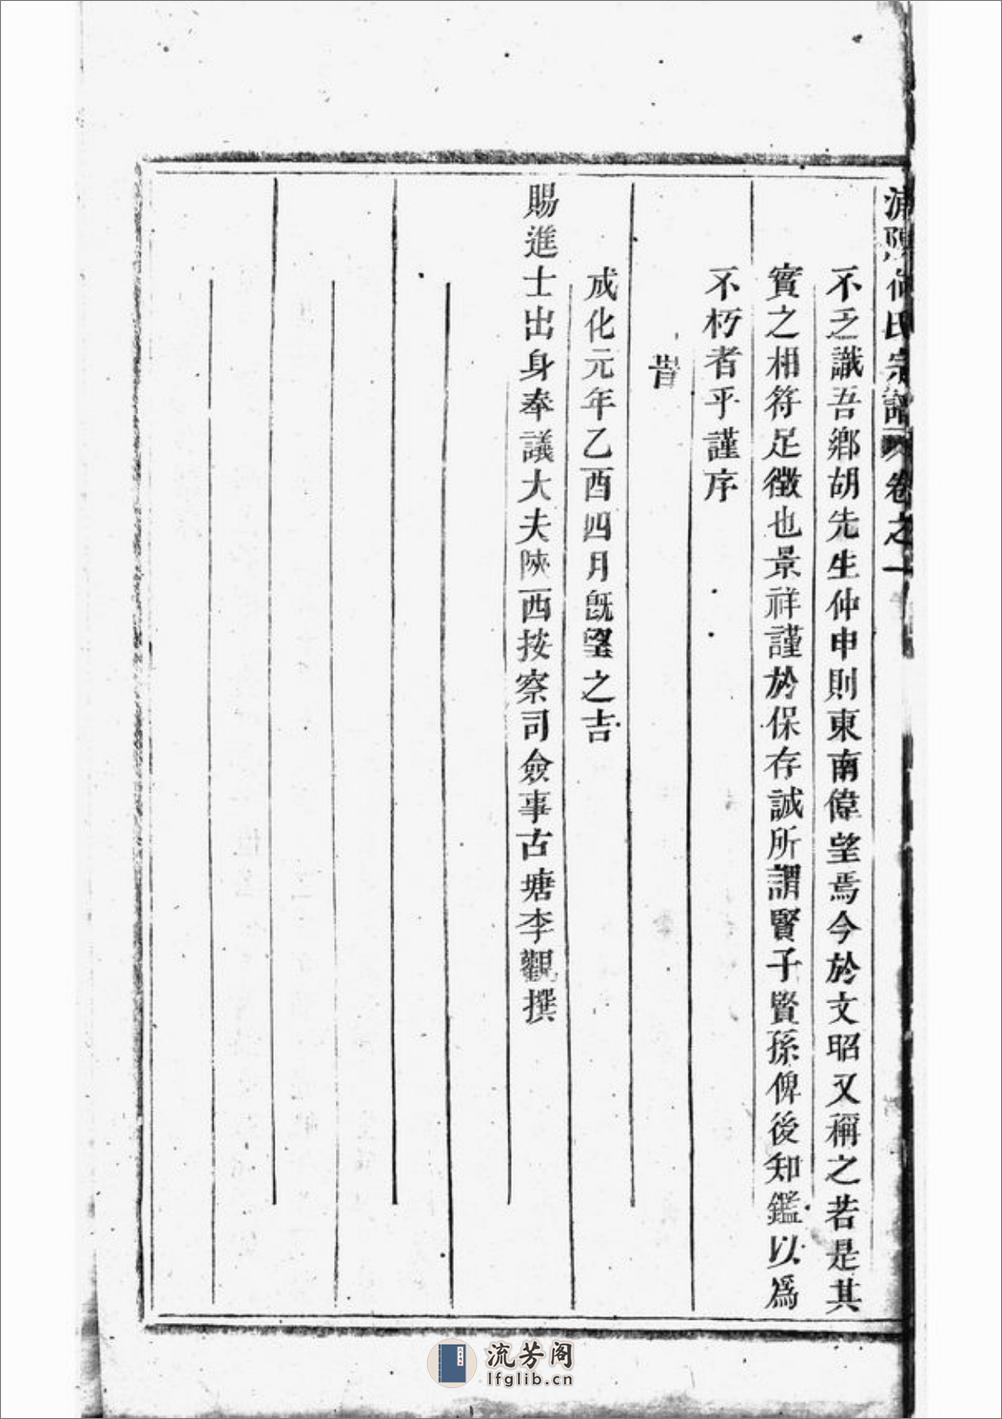 浦陽何氏宗譜 卷之一
不乏識吾鄉胡先生仲申則東南偉望焉今於文昭又稱之若是其
實之相符足徵也景祥謹於保存誠所謂賢子賢孫俾後知鑑以爲
不朽者乎謹序
旹
成化元年乙酉四月旣望之吉
賜進士出身奉議大夫陝西按察司僉事古塘李觀撰
流芳阁
lfglib.cn